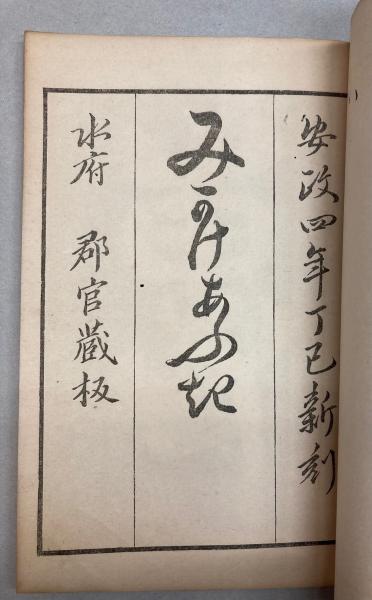 安政四年丁巳新刻
みかけあふ起
水府 郡官蔵板